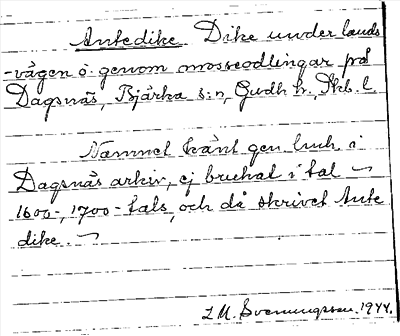 Antedike Dike under lands
-vägen o. genom mosseodlingar på
Dagsnäs, Bjärka s:n, Gudh h., Skb. l.
Namnet känt gen. luch i
Dagsnäs arkiv, ej brukat i tal
1600-, 1700-tals, och då skrivet Ante
dike.
L M. Svenungsson. 1944.